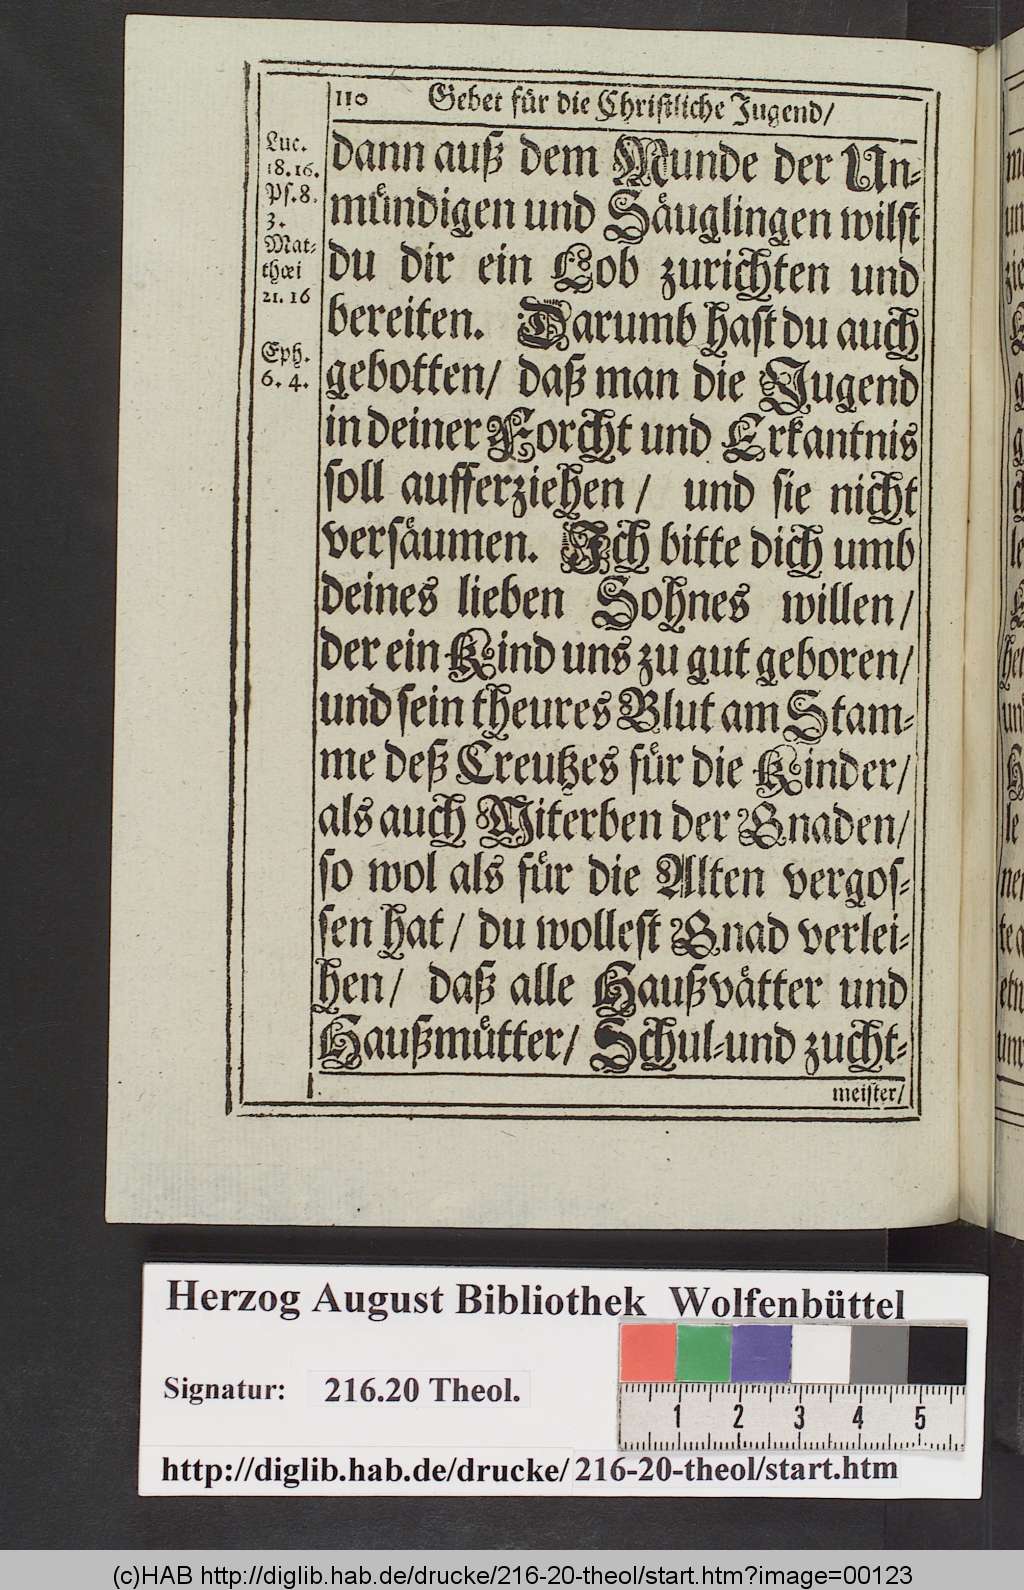 110 Gebet für die Christliche Jugend/
Luc.
18. 16.
Ps. 8.
3.
Mat-
thæi
21. 16
Eph.
6. 4.
dann auß dem Munde der Un-
mündigen und Säuglingen wilst
du dir ein Lob zurichten und
bereiten. Darumb hast du auch
gebotten/ daß man die Jugend
in deiner Forcht und Erkantnis
soll aufferziehen/ und sie nicht
versäumen. Ich bitte dich umb
deines lieben Sohnes willen/
der ein Kind uns zu gut geboren/
und sein theures Blut am Stam-
me deß Creutzes für die Kinder/
als auch Miterben der Gnaden/
so wol als für die Alten vergos-
sen hat/ du wollest Gnad verlei-
hen/ daß alle Haußvätter und
Haußmütter/ Schul-und zucht-
meister/
Herzog August Bibliothek Wolfenbüttel
Signatur: 216.20 Theol.
1 2 3 4 5
http://diglib.hab.de/drucke/216-20-theol/start.htm
(c)HAB http://diglib.hab.de/drucke/216-20-theol/start.htm?image=00123